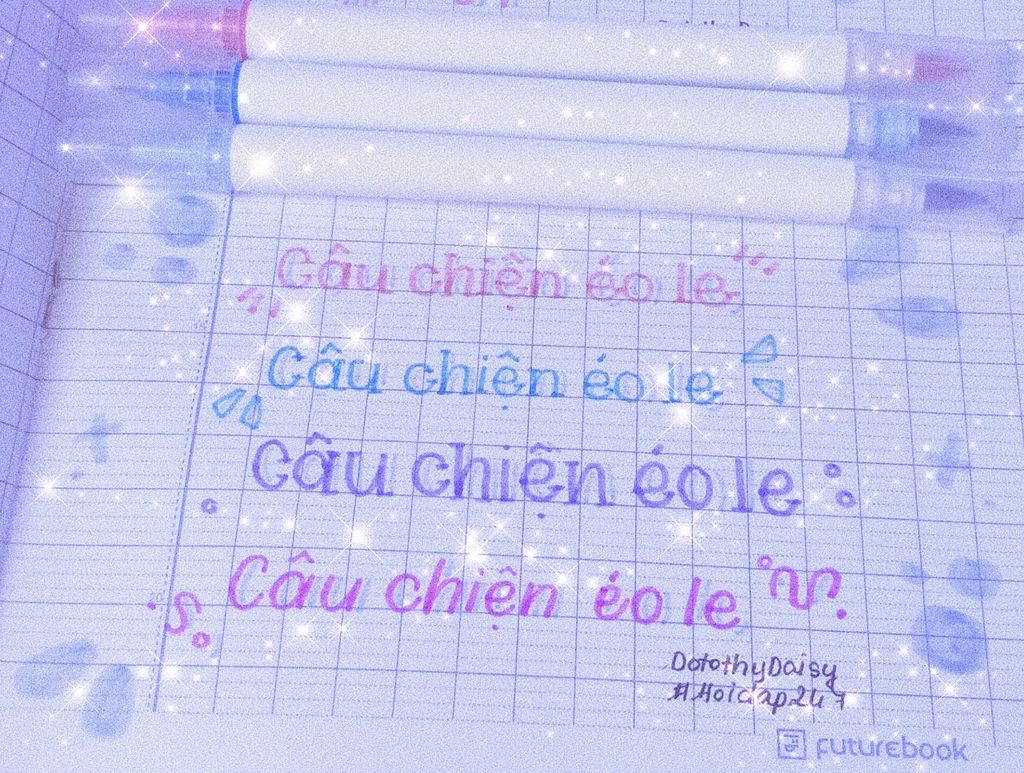 Câu chiện éo le
Câu chiện éo le
Câu chiện éo le
Câu chiện éo le
DotothyDaisy
#Hoidap247
futurebook